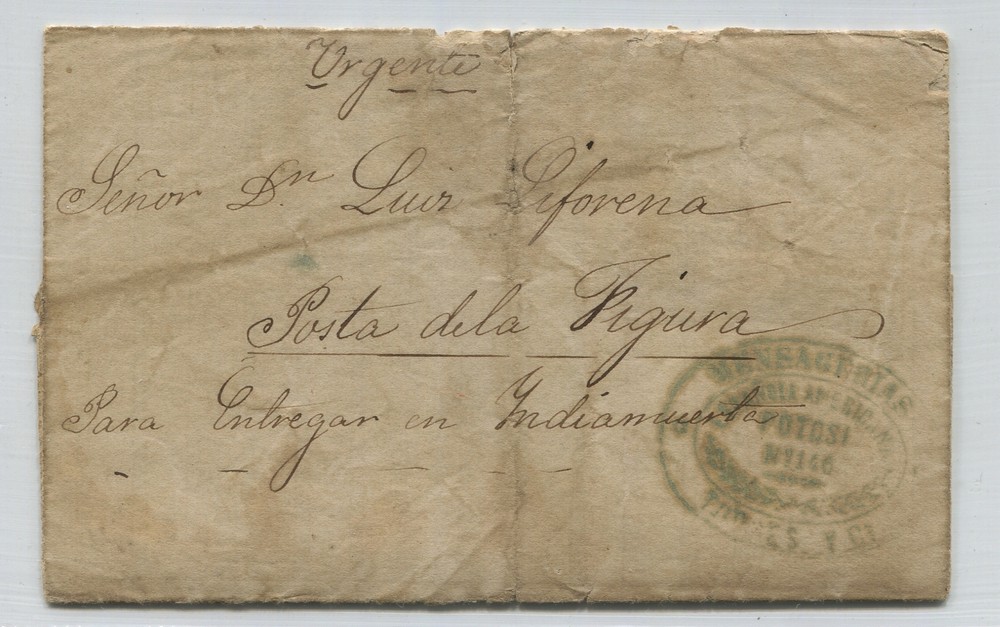 Urgente
Señor Dn. Luis Siforena
Posta dela Figura
Para Entregar en Indiamuerta
MENSAGERIAS
POTOSI
Nº 146
Y Cª